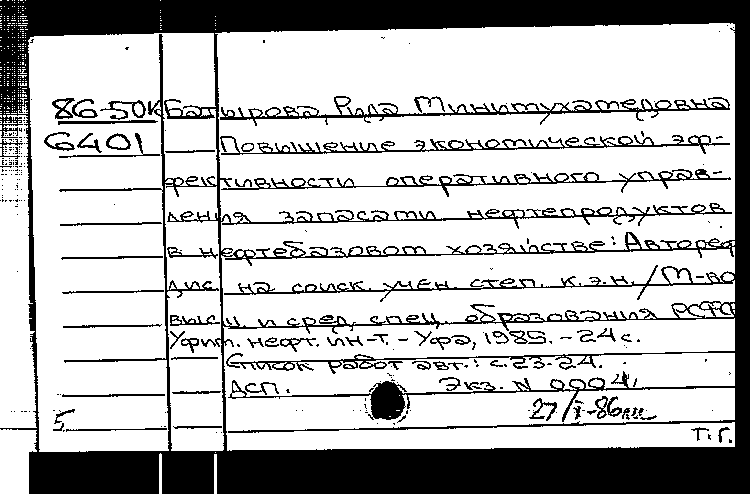 86-50к Батырова, Рида Минимухамедовна
6401 Повышение экономической эф-
фективности оперативного управ-
ления запасами нефтепродуктов
в нефтебазовом хозяйстве: Автореф
дис. на соиск. учен. степ. к.э.н. / М-во
высш. и сред. спец. образования РСФСР
Уфим. нефт. ин-т. - Уфа, 1985. - 24 с.
Список работ авт.: с. 23-24.
ДСП. Экз. N 0004.
27/I-86
5.
Т.Г.